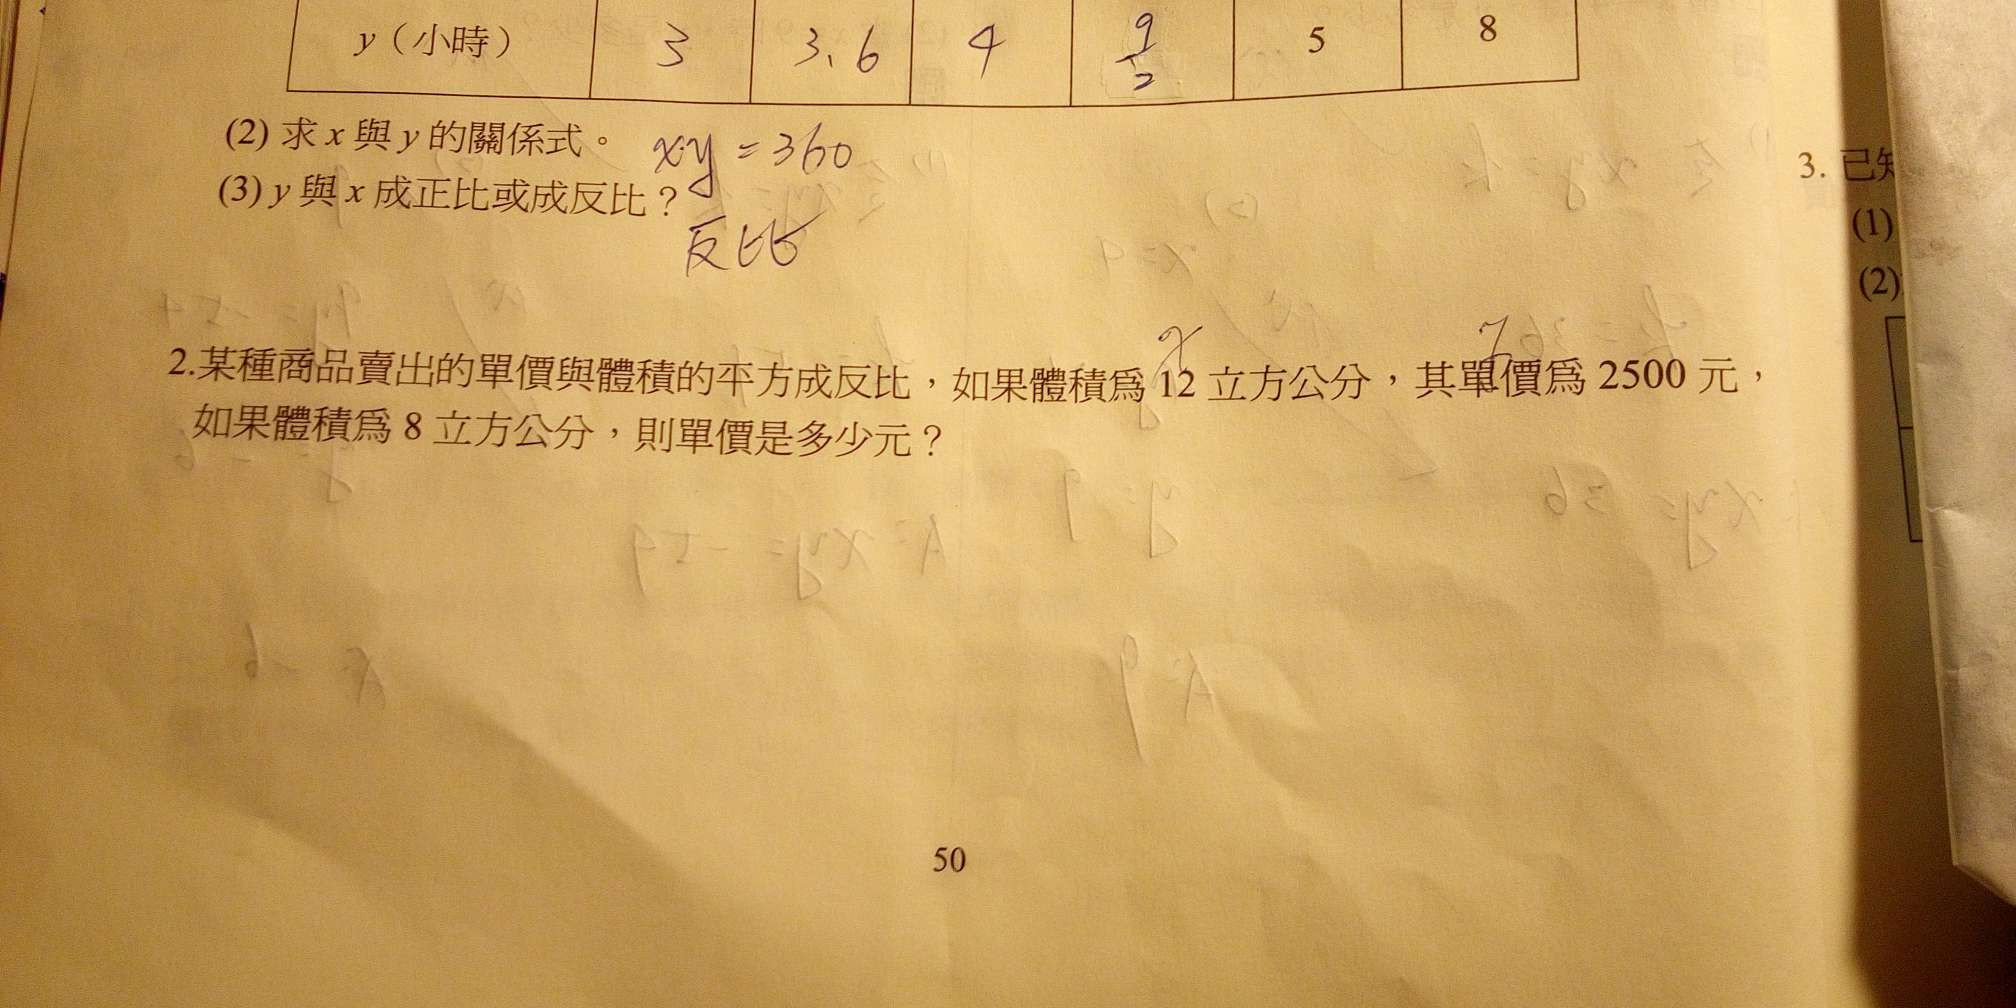 y（小時） 3 3.6 4 9/2 5 8
(2) 求 x 與 y 的關係式。 xy = 360
(3) y 與 x 成正比或成反比？
反比
3. 已知
(1)
(2)
x
2.某種商品賣出的單價與體積的平方成反比，如果體積爲 12 立方公分，其單價爲 2500 元，
如果體積爲 8 立方公分，則單價是多少元？
50